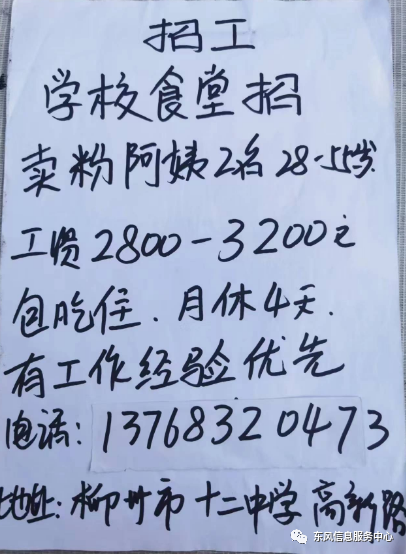 招工
学校食堂招
卖粉阿姨2名28-55岁
工资2800-3200元
包吃住、月休4天
有工作经验优先
电话:13768320473
地址:柳州市十二中学高新路
东风信息服务中心